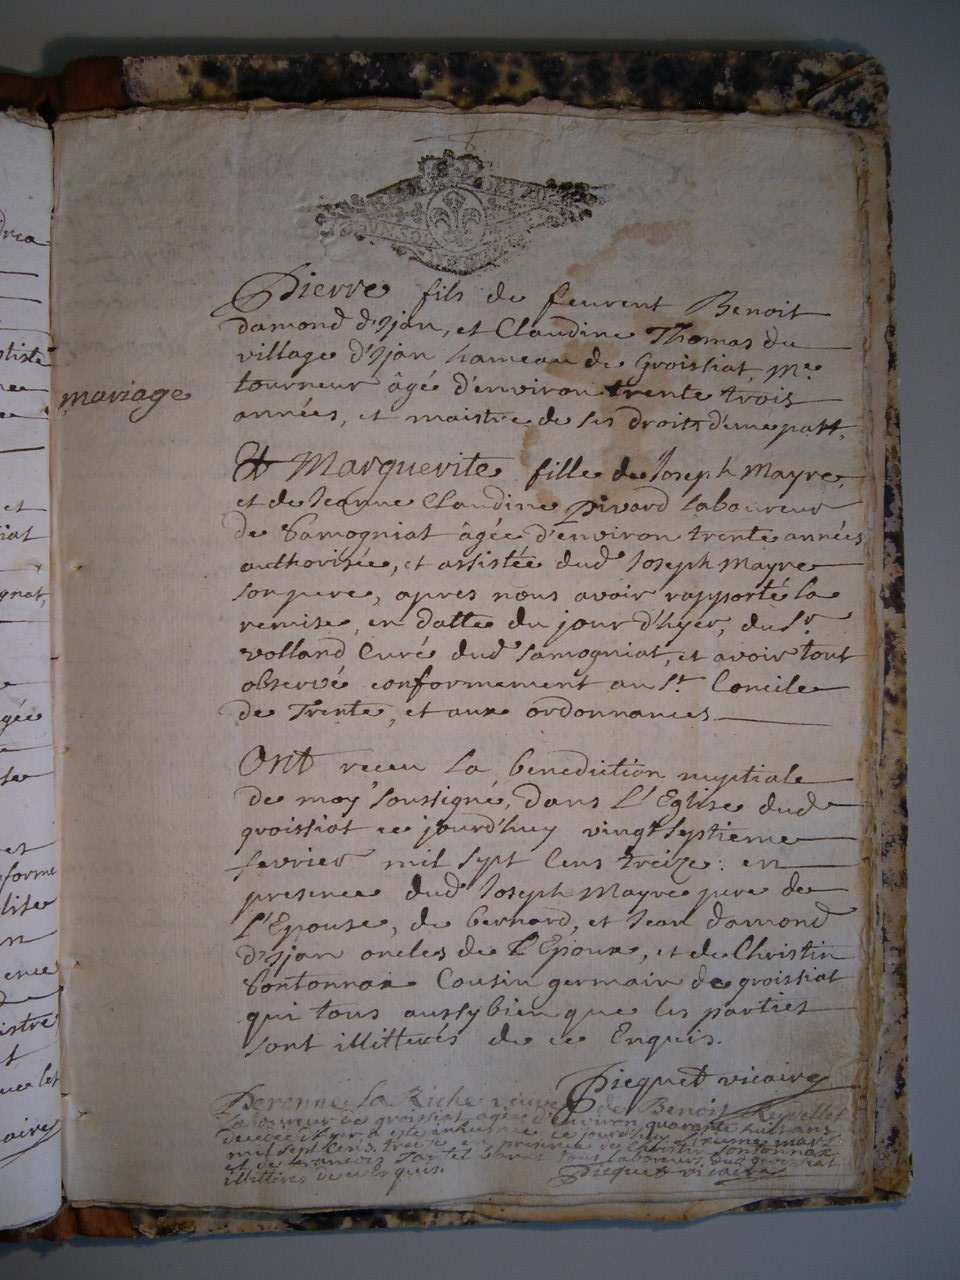 Pierre fils de feurent Benoit
damond d'Ijan, et Claudine Thomas du
village d'Ijan hameau de Groissiat, Me
tourneur âgé d'environ trente trois
années, et maistre de ses droits d'une part.
mariage
Et Marguerite fille de Joseph Mayre,
et de Jeanne Claudine Pivard Laboureur
de Samogniat âgée d'environ trente années
authorisée, et assistée dud Joseph Mayre
son pere, apres nous avoir rapporté la
remise, en datte du jour d'hyer, du Sr
volland Curé dud Samogniat, et avoir tout
observé conformement au St Concile
de Trente, et aux ordonnances
Ont receu la benediction nuptiale
de moy soussigné, dans l'Eglise dud
groissiat ce jourd'huy vingt septieme
fevrier mil sept Cens treize: en
presence dud Joseph Mayre pere de
l'Epouse, de Bernard, et Jean damond
d'Ijan oncles de l'Epoux, et de Christin
Sontonnax Cousin germain de groissiat
qui tous aussy bien que les parties
sont illitterés de ce Enquis.
Picquet vicaire
Perenne La Riche veuve de Benoit Reyvellet
Laboureur de groissiat agée d'environ quarante huit ans
decedée et hyer a esté inhumée ce jourd'huy mars
mil sept Cens treize en presence de Christin Sontonnax
et de francois tous laboureurs dud groissiat
illitterés de ce Enquis. Picquet vicaire